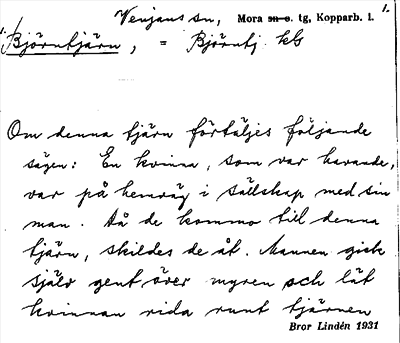 Venjans sn, Mora sn o. tg, Kopparb. l. 1.
1. Björntjärn, = Björntj. kb
Om denna tjärn förtäljes följande
sägen: En kvinna, som var havande,
var på hemväg i sällskap med sin
man. Då de kommo till denna
tjärn, skildes de åt. Mannen gick
själv gent över myren och lät
kvinnan rida runt tjärnen
Bror Lindén 1931